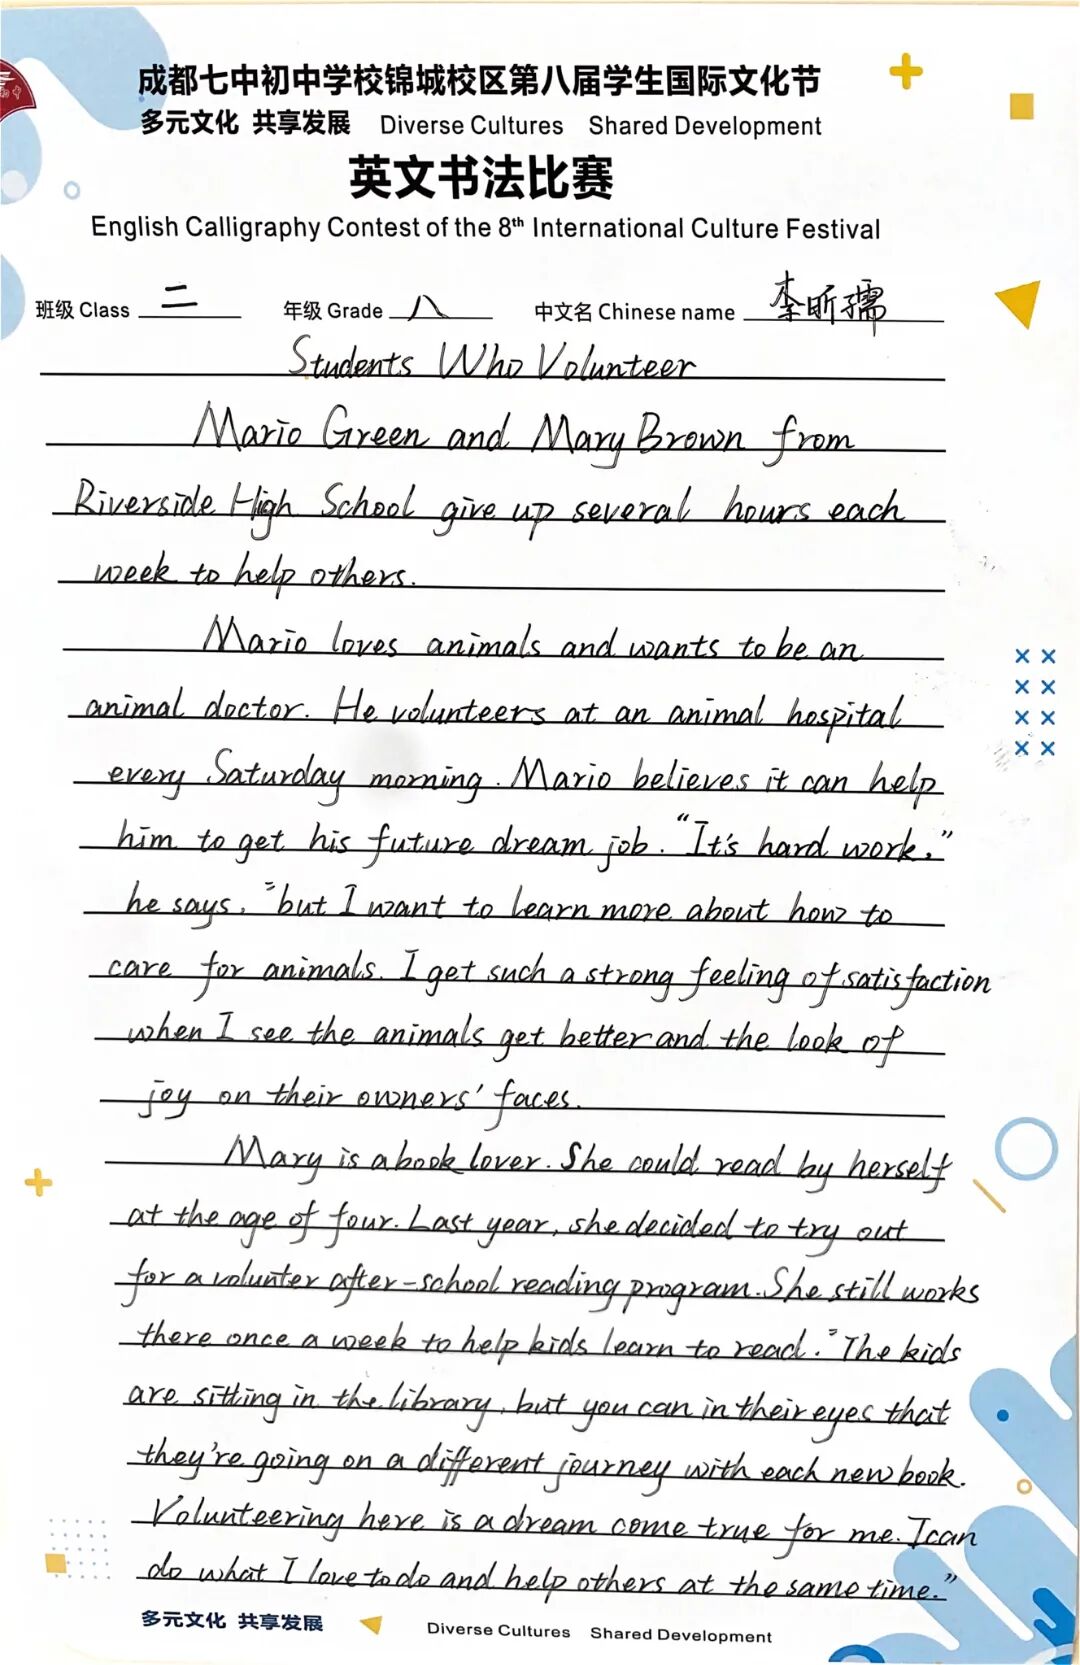 成都七中初中学校锦城校区第八届学生国际文化节
多元文化 共享发展 Diverse Cultures Shared Development
英文书法比赛
English Calligraphy Contest of the 8th International Culture Festival
班级 Class 二 年级 Grade 八 中文名 Chinese name 李昕孺
Students Who Volunteer
Mario Green and Mary Brown from
Riverside High School give up several hours each
week to help others.
Mario loves animals and wants to be an
animal doctor. He volunteers at an animal hospital
every Saturday morning. Mario believes it can help
him to get his future dream job. "It's hard work,"
he says, "but I want to learn more about how to
care for animals. I get such a strong feeling of satisfaction
when I see the animals get better and the look of
joy on their owners' faces.
Mary is a book lover. She could read by herself
at the age of four. Last year, she decided to try out
for a volunter after-school reading program. She still works
there once a week to help kids learn to read. "The kids
are sitting in the library, but you can in their eyes that
they're going on a different journey with each new book.
Volunteering here is a dream come true for me. I can
do what I love to do and help others at the same time."
多元文化 共享发展 Diverse Cultures Shared Development